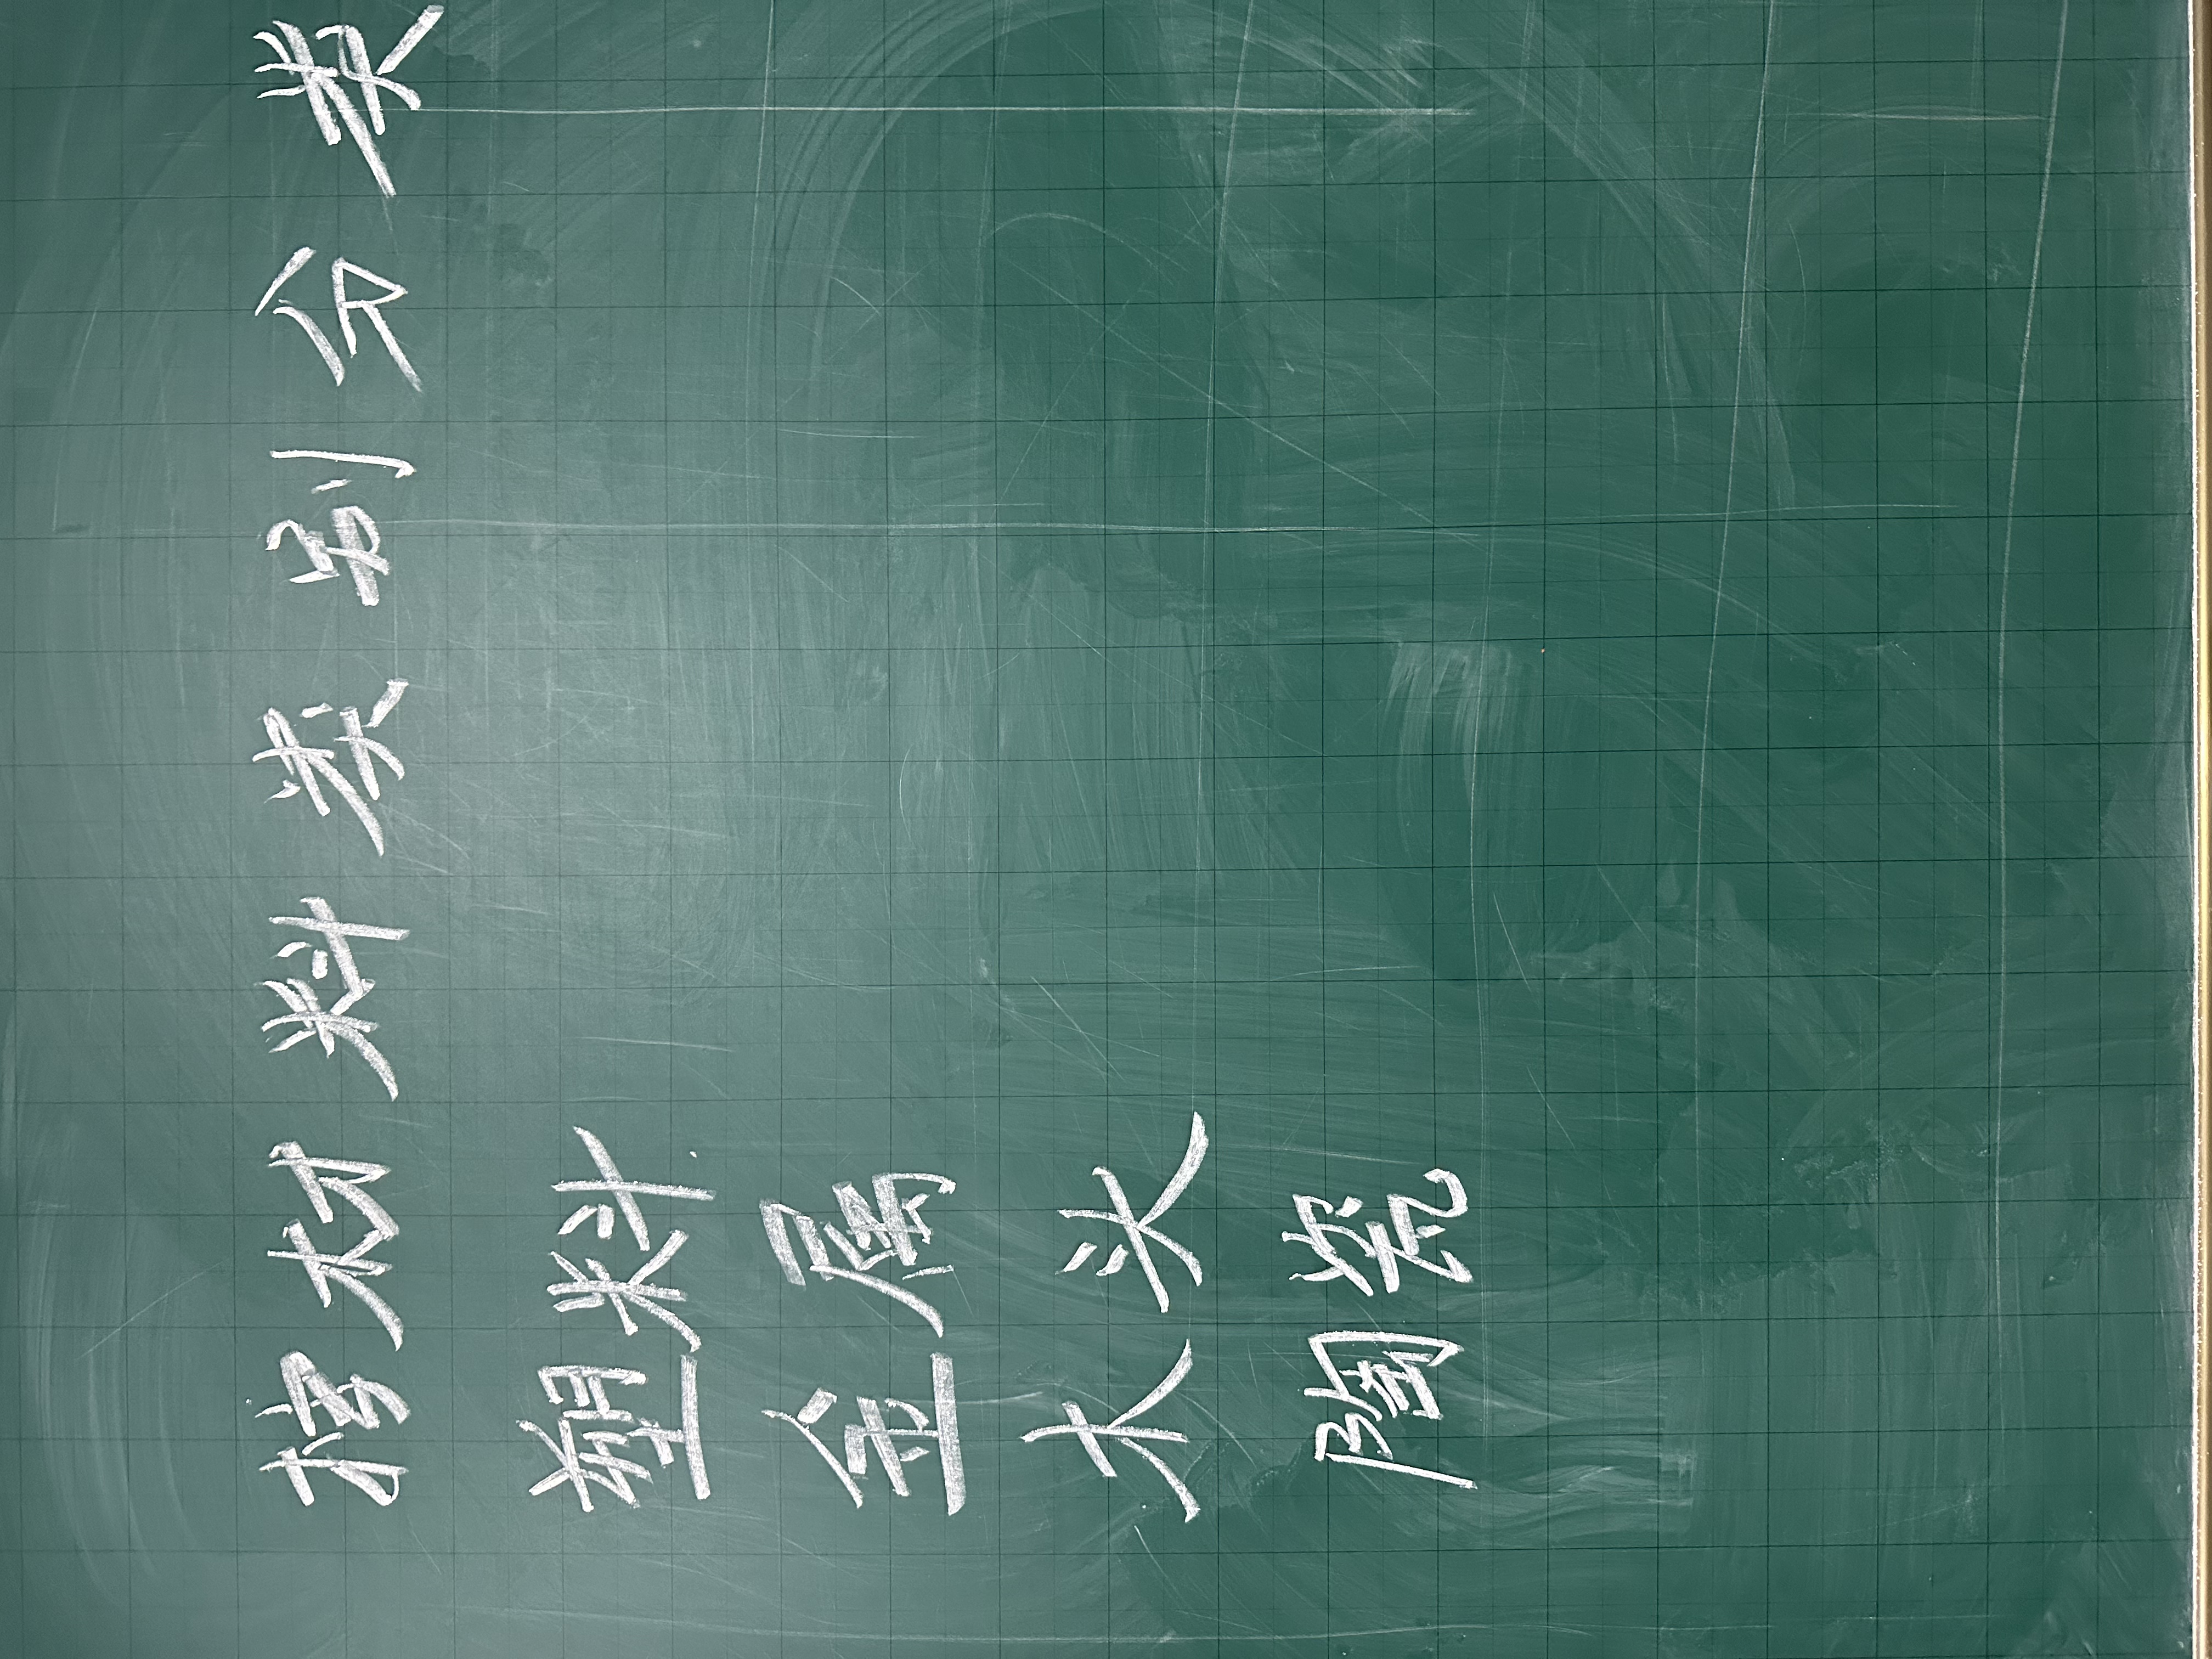 按材料类别分类
塑料
金属
木头
陶瓷